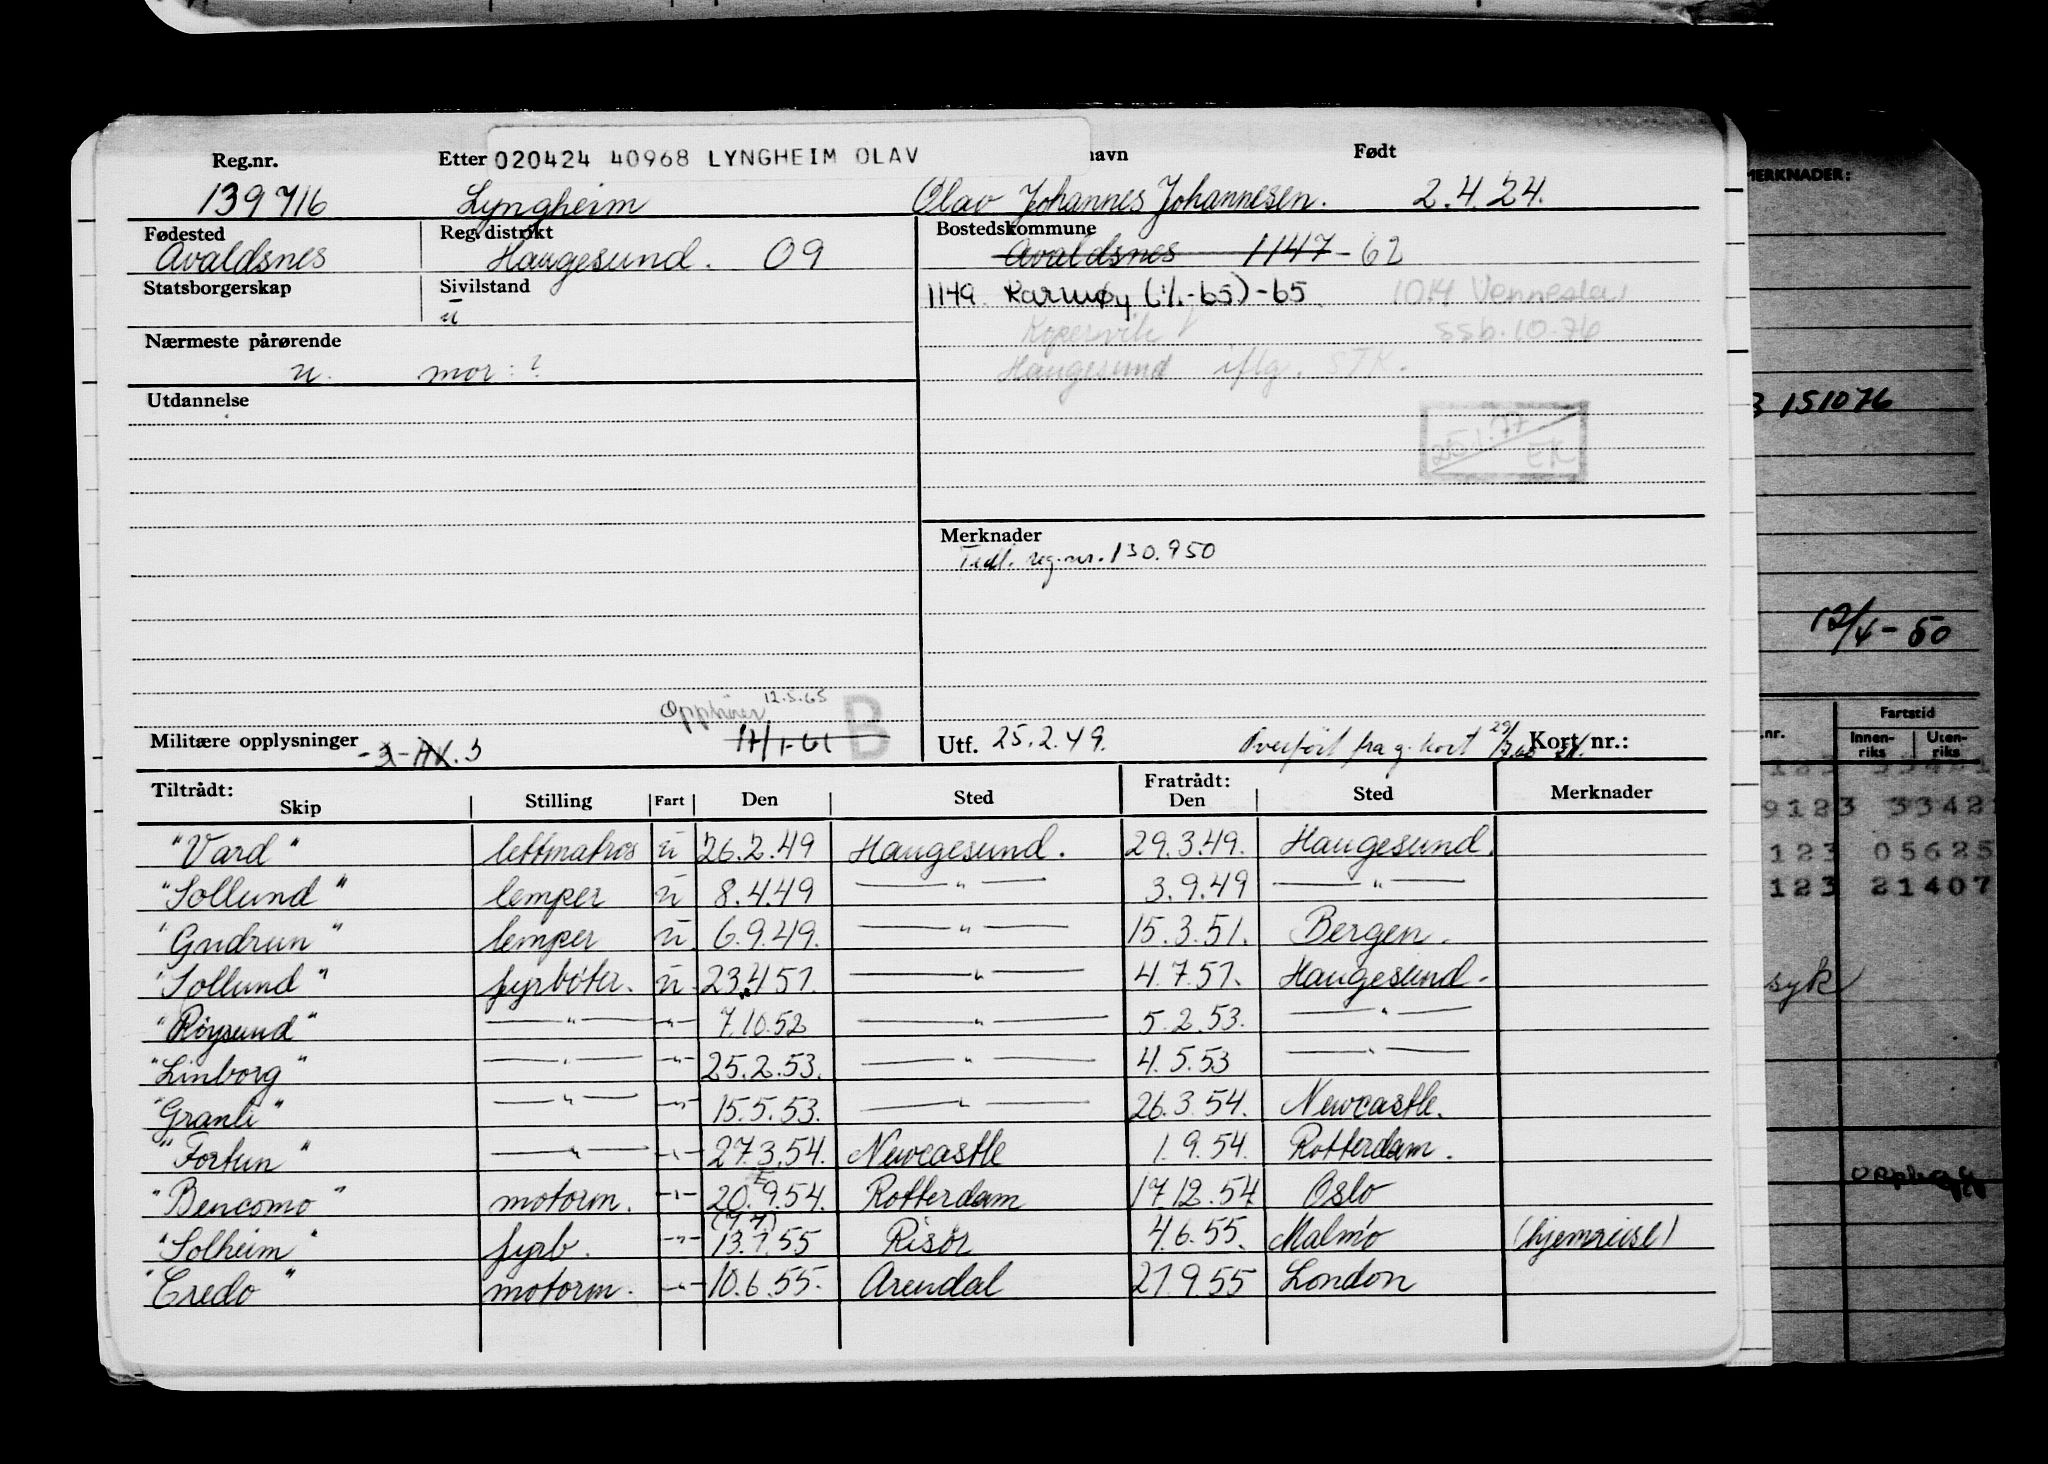 Reg.nr. Etter 020424 40968 LYNGHEIM OLAV navn Født
139716 Lyngheim Olav Johannes Johannesen. 2.4.24.
Fødested Reg. distrikt Bostedskommune
Avaldsnes Haugesund. 09 Avaldsnes 1147-62
Statsborgerskap Sivilstand 1149 Karmøy (1/1-65)-65 1014 Vennesla
u
Kopervik ssb.10.76
Nærmeste pårørende
u. mor: ? Haugesund iflg. STK.
Utdannelse
25.1.77
EK
Merknader
Tidl. reg.nr. 130.950
Opphører 12.5.65 B
Militære opplysninger -3-HK.3 17/1-61 Utf. 25.2.49. Overført fra g. kort Kort nr.:
Tiltrådt: Skip Stilling Fart Den Sted Fratrådt: Den Sted Merknader
"Vard" lettmatros u 26.2.49 Haugesund. 29.3.49. Haugesund.
"Sollund" lemper u 8.4.49 —"— 3.9.49 —"—
"Gudrun" lemper u 6.9.49. —"— 15.3.51. Bergen.
"Sollund" fyrbøter. u 23.4 51. —"— 4.7.51. Haugesund.
"Røysund" —"— —"— 7.10.52 —"— 5.2.53. —"—
"Linborg" —"— —"— 25.2.53. —"— 4.5.53 —"—
"Granli" —"— —"— 15.5.53. —"— 26.3.54. Newcastle.
"Fortun" —"— —"— 27.3.54. Newcastle 1.9.54. Rotterdam.
"Bencomo" motorm. —"— 20.9.54. Rotterdam 17.12.54 Oslo
"Solheim" fyrb. —"— 13.1.55 Risør 4.6.55. Malmö (hjemreise)
"Credo" motorm. —"— 10.6.55. Arendal 21.9.55 London
MERKNADER:
3 151076
12/4-50
.nr. Fartstid
Innen-riks Uten-riks
123 33421
9123 33421
123 05625
123 21407
syk